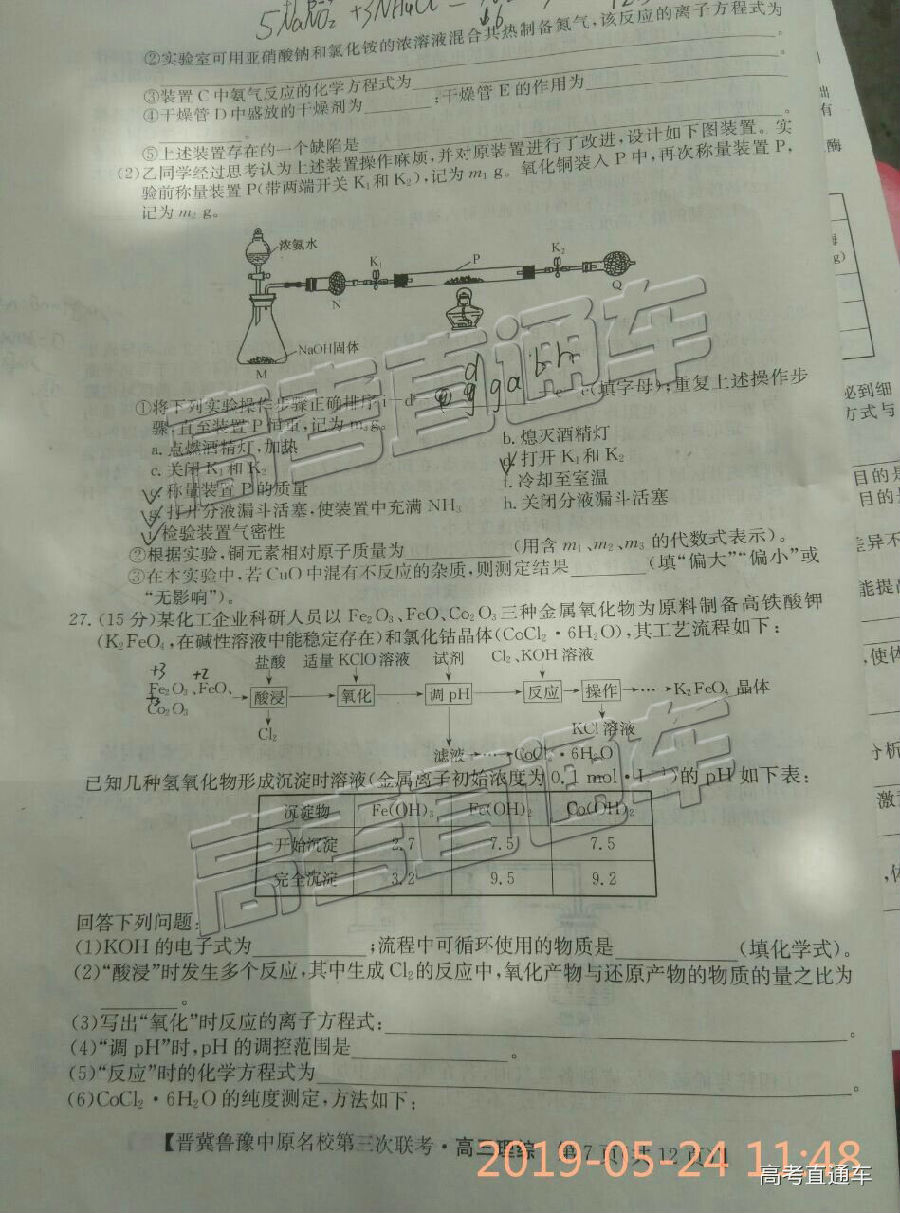 5NaNO₂ +3NH₄Cl =
②实验室可用亚硝酸钠和氯化铵的浓溶液混合共热制备氮气,该反应的离子方程式为
。
③装置C中氨气反应的化学方程式为
④干燥管D中盛放的干燥剂为 ;干燥管E的作用为
。
⑤上述装置存在的一个缺陷是
(2)乙同学经过思考认为上述装置操作麻烦,并对原装置进行了改进,设计如下图装置。实
验前称量装置P(带两端开关K₁和K₂),记为m₁ g。氧化铜装入P中,再次称量装置P,
记为m₂ g。
浓氨水
K₁
P
K₂
N
Q
NaOH固体
M
①将下列实验操作步骤正确排序:i→d→ g a b h →e(填字母);重复上述操作步
骤,直至装置P恒重,记为m₃ g。
a. 点燃酒精灯,加热
b. 熄灭酒精灯
c. 关闭K₁和K₂
d. 打开K₁和K₂
e. 称量装置P的质量
f. 冷却至室温
g. 打开分液漏斗活塞,使装置中充满NH₃
h. 关闭分液漏斗活塞
i. 检验装置气密性
②根据实验,铜元素相对原子质量为 (用含m₁、m₂、m₃的代数式表示)。
③在本实验中,若CuO中混有不反应的杂质,则测定结果 (填“偏大”“偏小”或
“无影响”)。
27.(15分)某化工企业科研人员以Fe₂O₃、FeO、Co₂O₃三种金属氧化物为原料制备高铁酸钾
(K₂FeO₄,在碱性溶液中能稳定存在)和氯化钴晶体(CoCl₂·6H₂O),其工艺流程如下:
盐酸 适量KClO溶液 试剂 Cl₂、KOH溶液
+3 +2
Fe₂O₃、FeO、
Co₂O₃
酸浸 氧化 调pH 反应 操作 →…→K₂FeO₄晶体
Cl₂
KCl溶液
滤液→…→CoCl₂·6H₂O
已知几种氢氧化物形成沉淀时溶液(金属离子初始浓度为0.1 mol·L⁻¹)的pH如下表:
沉淀物 Fe(OH)₃ Fe(OH)₂ Co(OH)₂
开始沉淀 2.7 7.5 7.5
完全沉淀 3.2 9.5 9.2
回答下列问题:
(1)KOH的电子式为 ;流程中可循环使用的物质是 (填化学式)。
(2)“酸浸”时发生多个反应,其中生成Cl₂的反应中,氧化产物与还原产物的物质的量之比为
。
(3)写出“氧化”时反应的离子方程式: 。
(4)“调pH”时,pH的调控范围是 。
(5)“反应”时的化学方程式为 。
(6)CoCl₂·6H₂O的纯度测定,方法如下:
【晋冀鲁豫中原名校第三次联考·高三理综 第7页(共12页)】
2019-05-24 11:48
高考直通车
高考直通车
高考直通车
有
酶
g)
必到细
方式与
目的是
目的
差异不
能提高
,使
分析
激